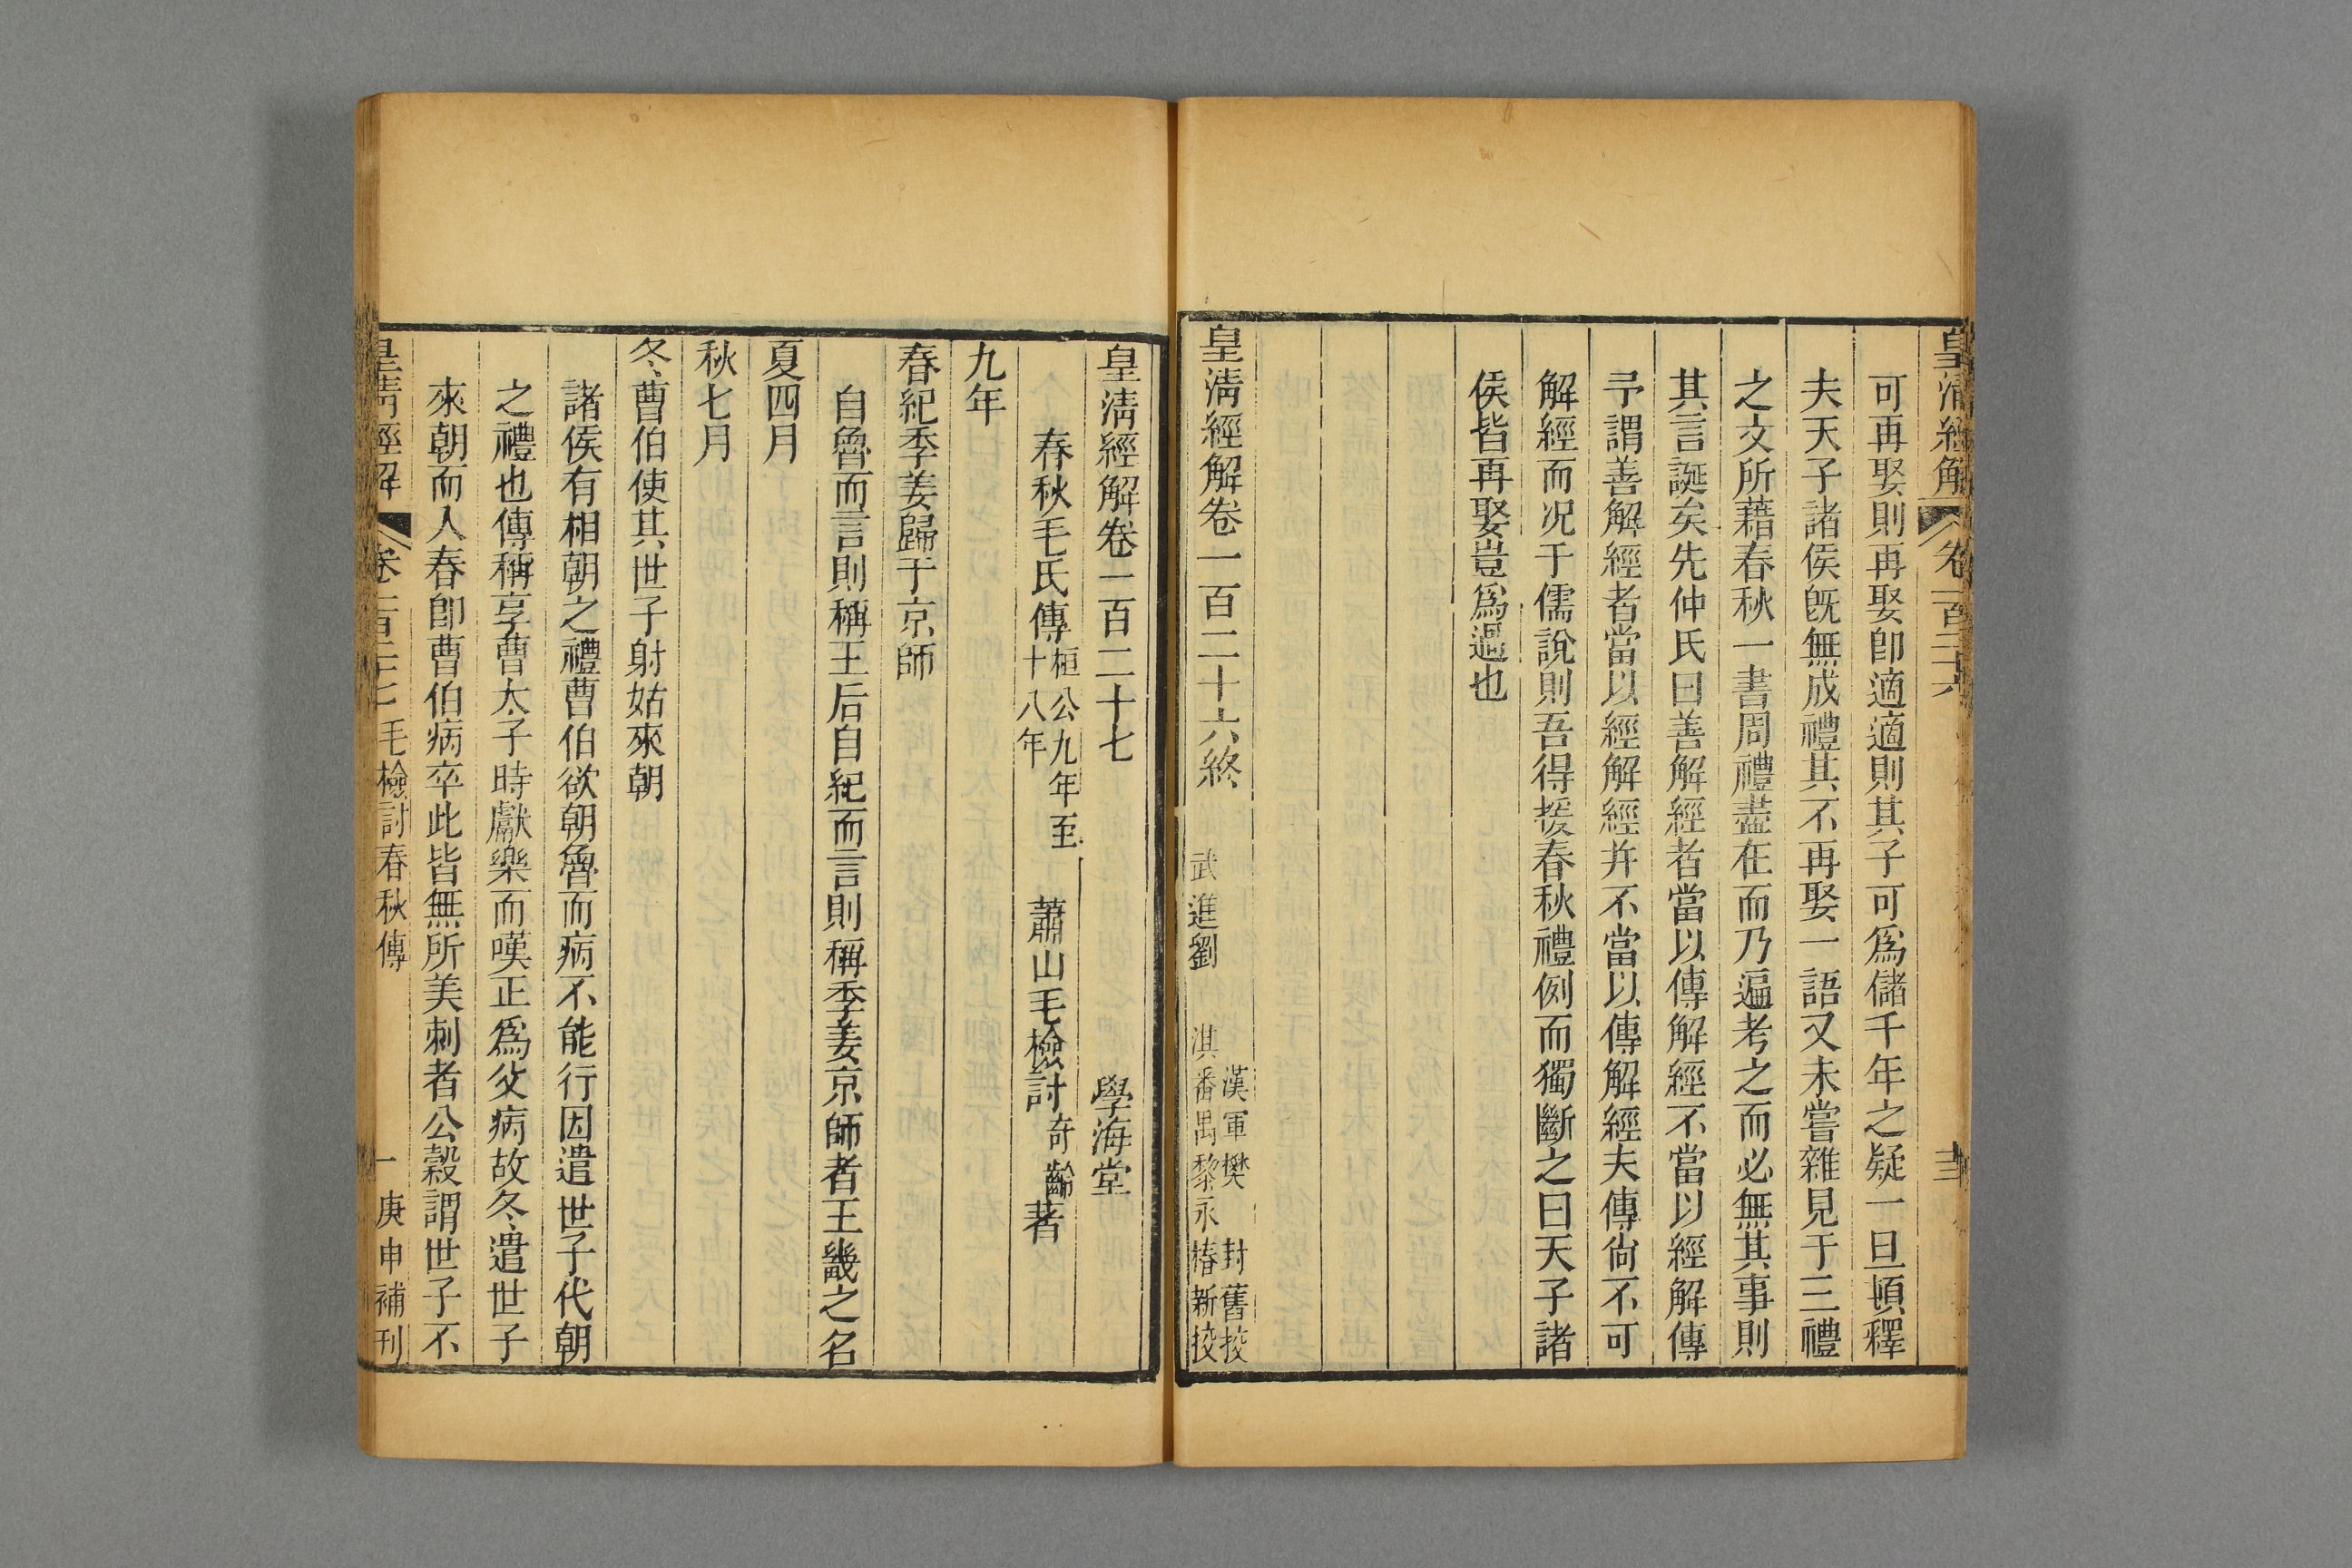 皇清經解 卷一百二十六 
可再娶則再娶卽適適則其子可爲儲千年之疑一旦頓釋
夫天子諸侯旣無成禮其不再娶一語又未嘗雜見于三禮
之文所藉春秋一書周禮盡在而乃遍考之而必無其事則
其言誕矣先仲氏曰善解經者當以傳解經不當以經解傳
予謂善解經者當以經解經并不當以傳解經夫傳尙不可
解經而况于儒說則吾得援春秋禮例而獨斷之曰天子諸
侯皆再娶豈爲過也
皇清經解卷一百二十六終
漢軍樊 封舊挍
武進劉 淇番禺黎永椿新挍
皇清經解卷一百二十七 學海堂
春秋毛氏傳 桓公九年至十八年 蕭山毛檢討奇齡著
九年
春紀季姜歸于京師
自魯而言則稱王后自紀而言則稱季姜京師者王畿之名
夏四月
秋七月
冬曹伯使其世子射姑來朝
諸侯有相朝之禮曹伯欲朝魯而病不能行因遣世子代朝
之禮也傳稱享曹太子時獻樂而嘆正爲父病故冬遣世子
來朝而入春卽曹伯病卒此皆無所美刺者公穀謂世子不
皇清經解 卷一百二十七 毛檢討春秋傳 一 庚申補刊